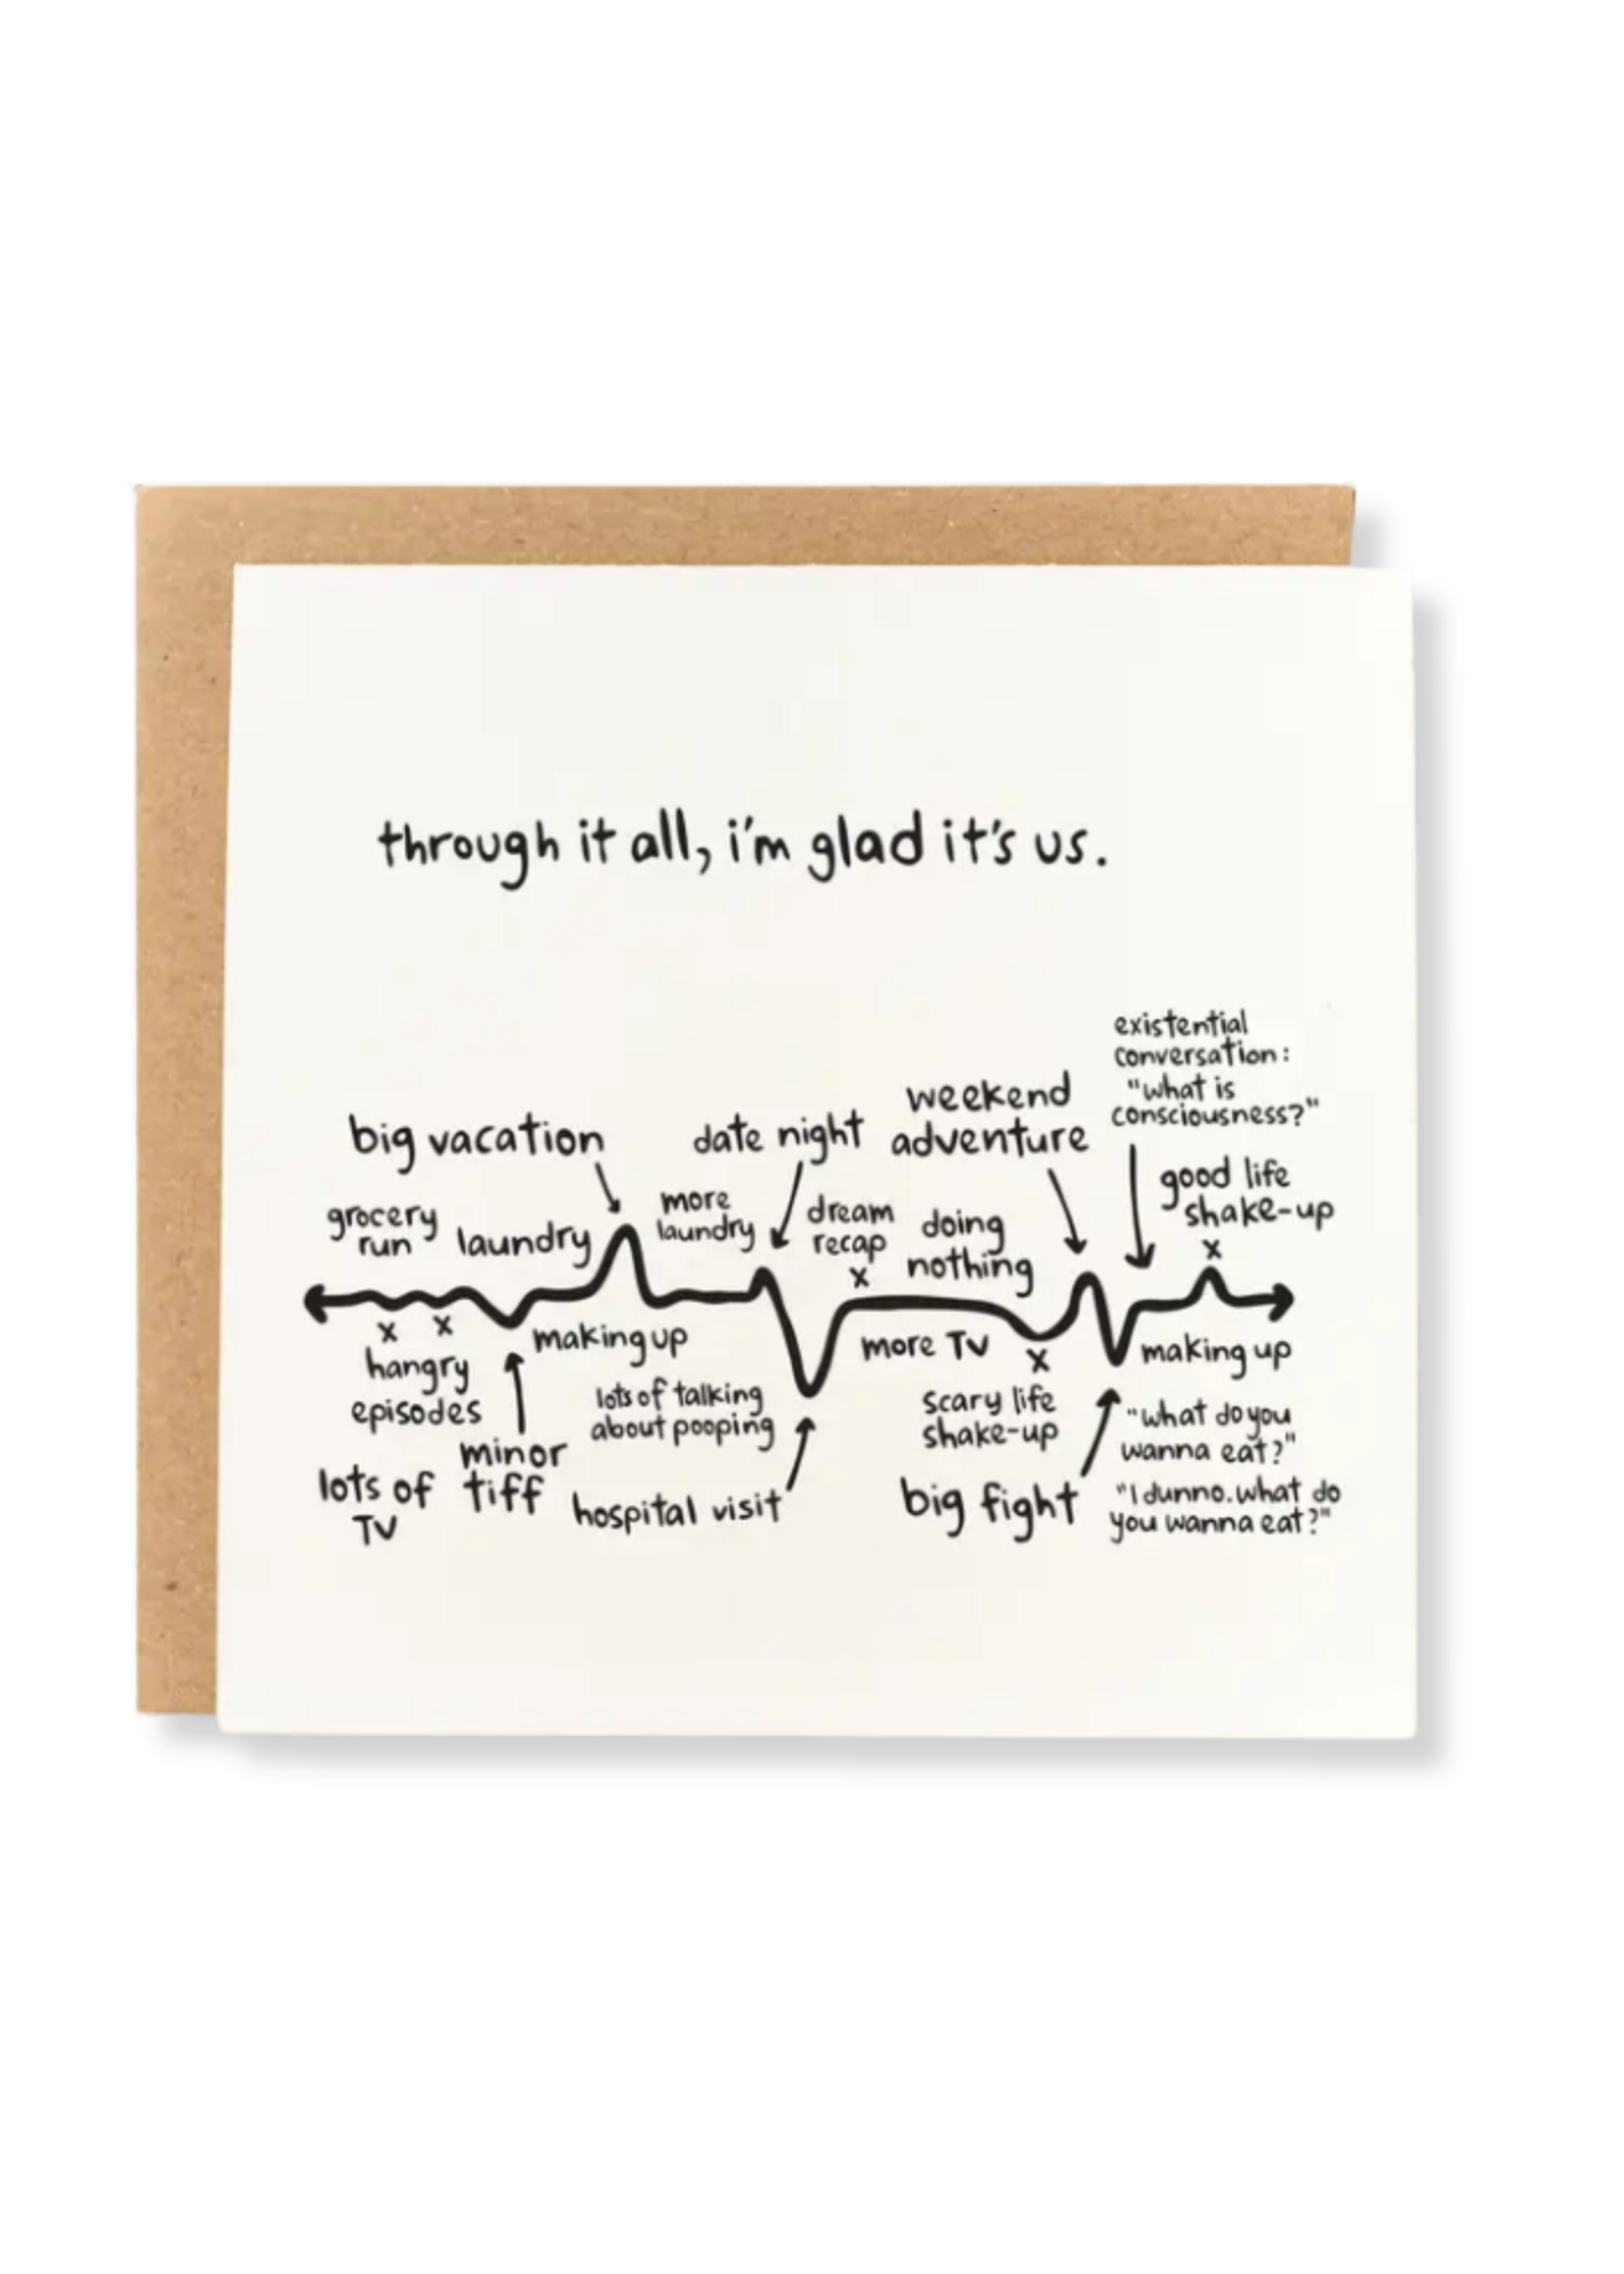 through it all, i'm glad it's us.
existential
conversation:
"what is
consciousness?"
weekend
adventure
big vacation
date night
good life
shake-up
x
grocery
run
laundry
more
laundry
dream
recap
x
doing
nothing
x x
hangry
episodes
making up
more TV
x
scary life
shake-up
making up
lots of talking
about pooping
minor
tiff
lots of
TV
hospital visit
big fight
"what do you
wanna eat?"
"I dunno. what do
you wanna eat?"